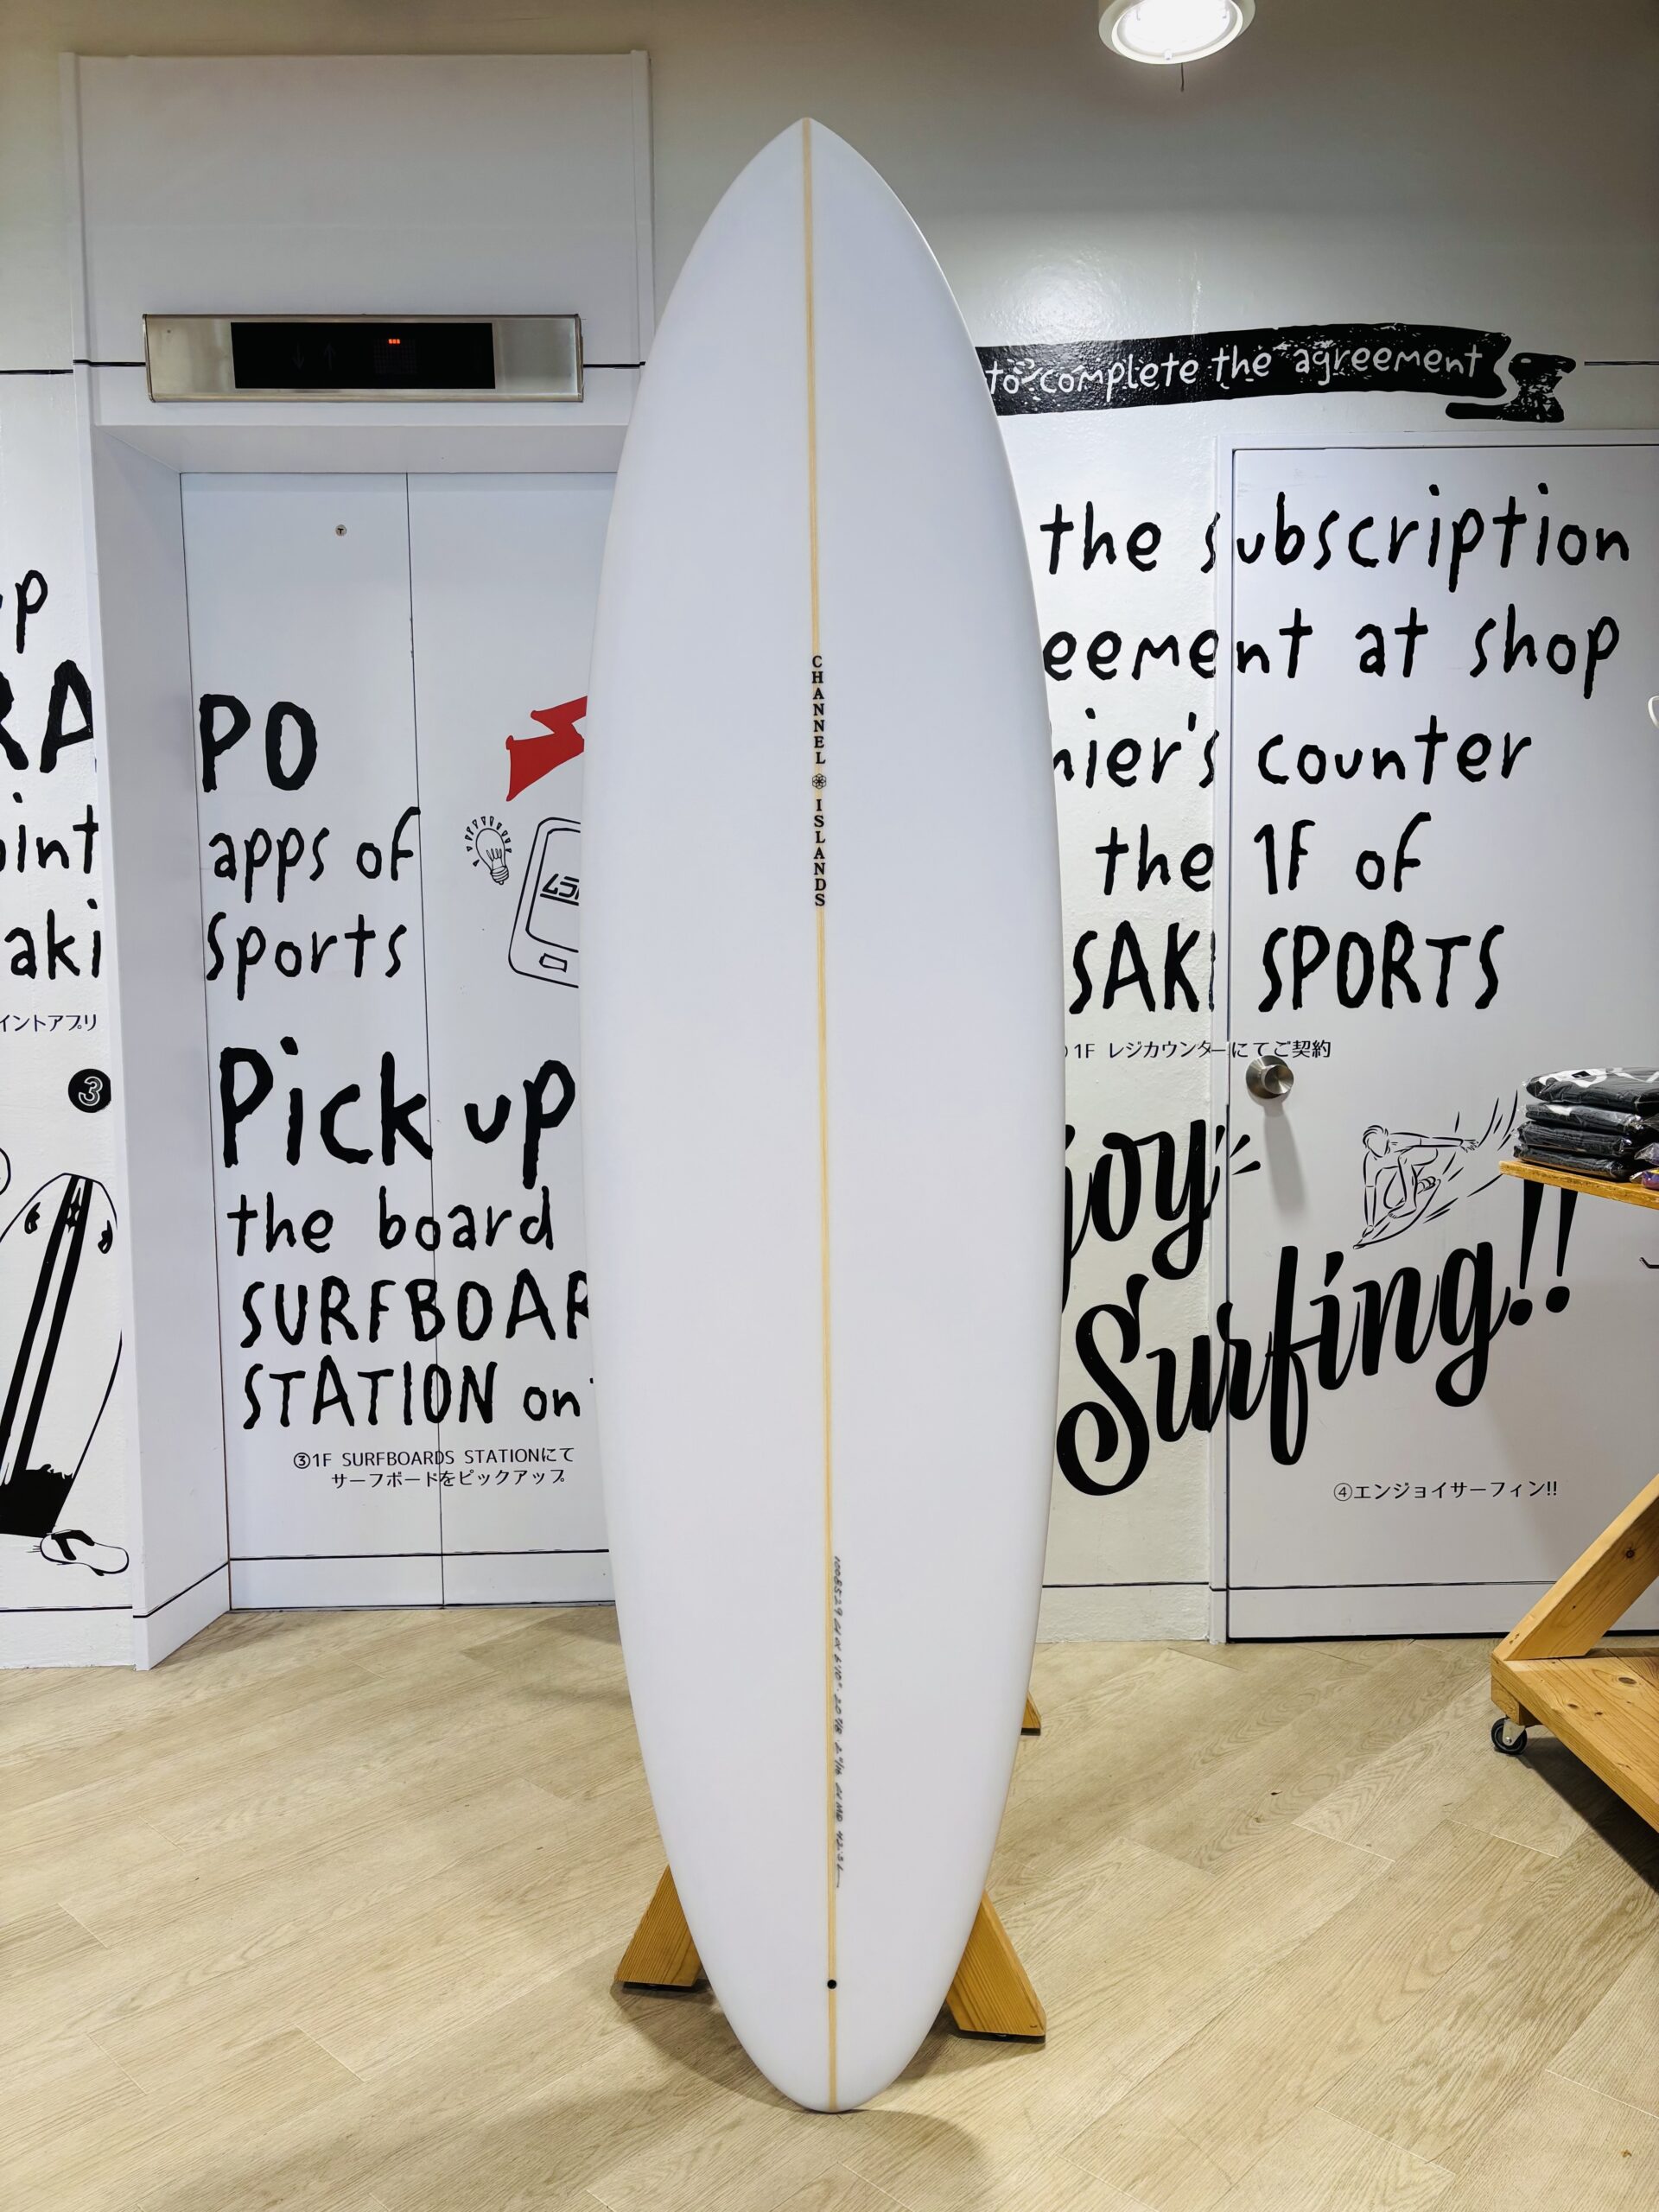 to complete the agreement
the subscription
eement at shop
hier's counter
the 1F of
SAKI SPORTS
1F レジカウンターにてご契約
joy
Surfing!!
④エンジョイサーフィン!!
CHANNEL ISLANDS
p
RA
oint
aki
イントアプリ
3
PO
apps of
Sports
Pick up
the board
SURFBOAR
STATION on
③1F SURFBOARDS STATIONにて
サーフボードをピックアップ